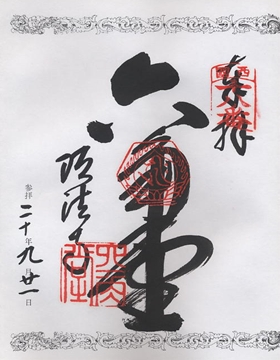 奉拝
六角堂
頂法寺
参拝 二十年九月廿一日